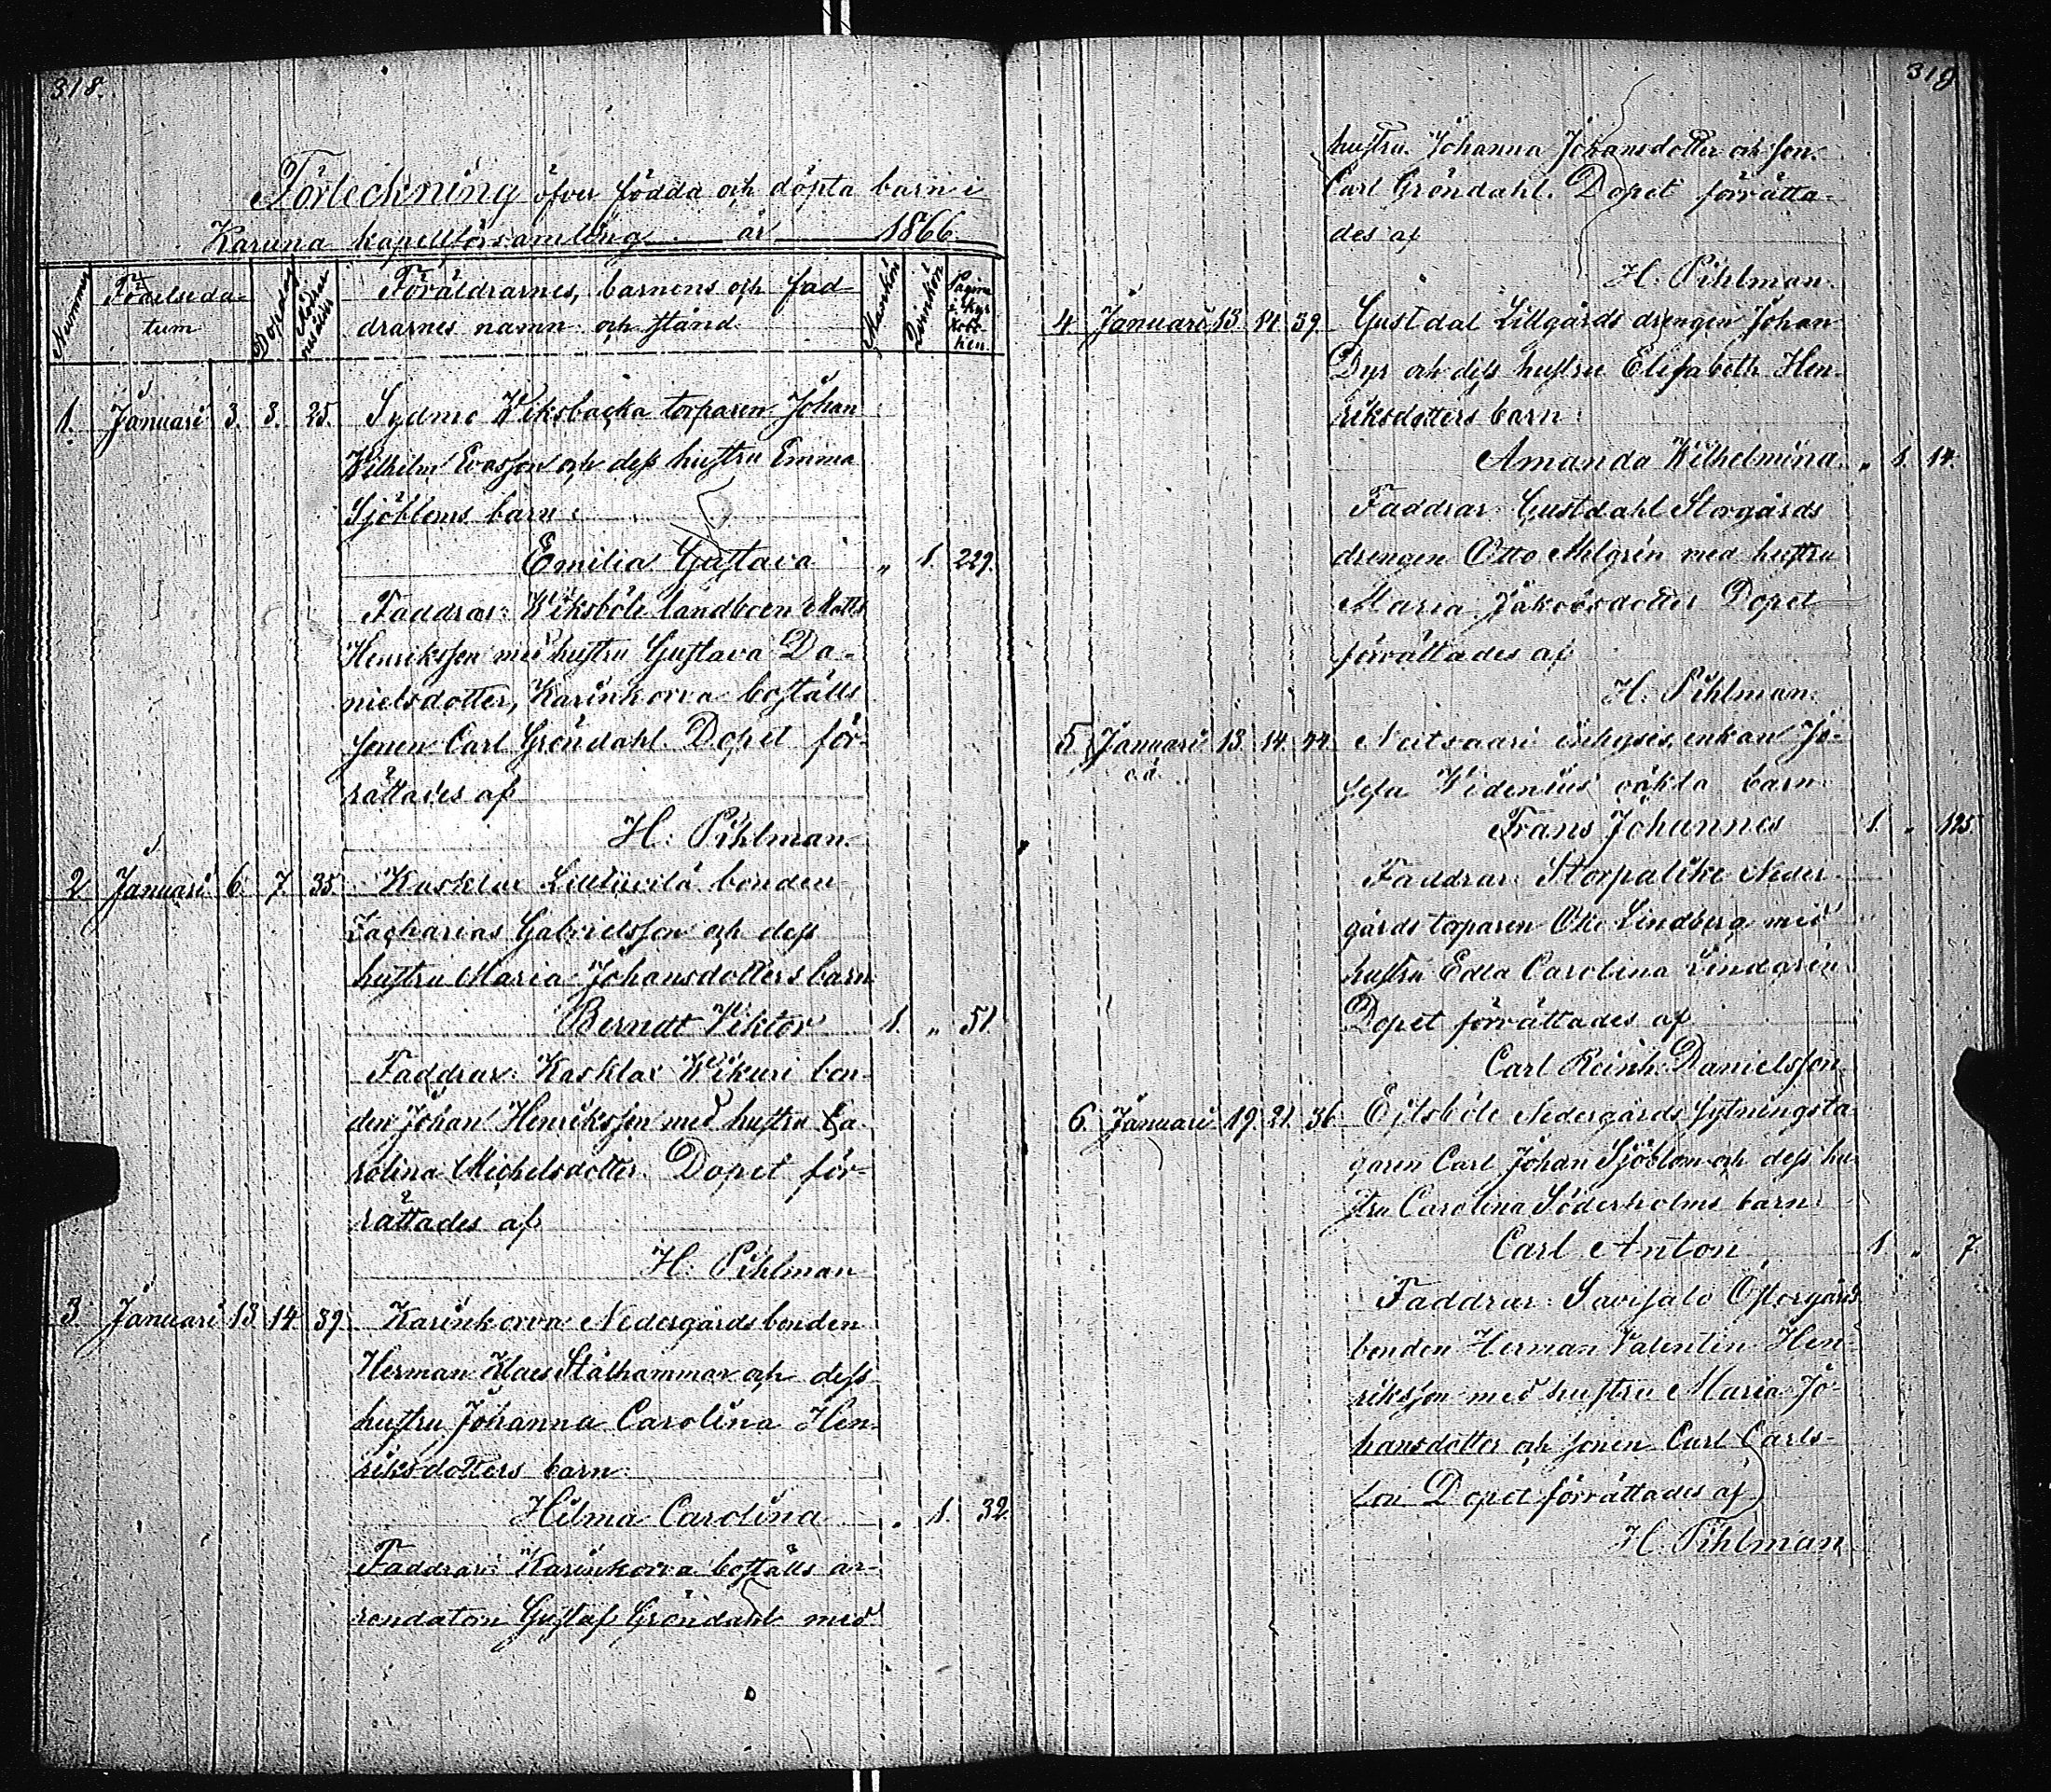 318.
Förteckning öfver födda och döpta barn i
Karuna kapellförsamling år 1866
Nummer Födelsedatum Dopdag Modrens ålder Föräldrarnes, barnens och faddrarnes namn och stånd Mankön Qvinkön Pagina i Kyrkoboken
1. Januari 3. 3. 25. Sydmo Wiksbacka torparen Johan
Wilhelm Evasson och dess hustru Emma
Sjöbloms barn:
Emilia Gustava " 1. 229.
Faddrar: Wiksböle landboen Matts
Henriksson med hustru Gustava Da-
nielsdotter, Karinkorva boställs
sonen Carl Gröndahl. Dopet för-
rättades af
H. Pihlman.
2 Januari 6. 7. 35. Kasklax bonden
Zacharias Gabrielsson och dess
hustru Maria Johansdotters barn
Berndt Viktor 1. " 51
Faddrar: Kasklax Wikuri bon-
den Johan Henriksson med hustru Ca-
rolina Michelsdotter. Dopet för-
rättades af
H. Pihlman
3 Januari 13 14 39. Karinkorva Nedergårds bonden
Herman Klaes Stålhammar och dess
hustru Johanna Carolina Hen-
riksdotters barn:
Hilma Carolina " 1. 32.
Faddrar: Karinkorva boställs ar-
rendatorn Gustaf Gröndahl med
319
hustru Johanna Johansdotter och son.
Carl Gröndahl. Dopet förrätta-
des af
H. Pihlman.
4 Januari 13 14 39. Gustdal Lillgårds drengen Johan
Dyr och dess hustru Elisabeth Hen-
riksdotters barn:
Amanda Wilhelmina " 1. 14.
Faddrar: Gustdahl Storgårds
drengen Otto Ahlgrén med hustru
Maria Jakobsdotter Dopet
förrättades af
H. Pihlman.
5 Januari 13 14 44 Neitsaari inhyses enkan Jo-
sefa Widenius oäkta barn
o.ä.
Frans Johannes 1. " 125.
Faddrar: Storpalike Neder-
gårds torparen Otto Lindberg med
hustru Edla Carolina Lindgrén
Dopet förrättades af
Carl Reinh. Danielsson
6 Januari 19. 21. 36 Eistböle Nedergårds sytningsta-
garen Carl Johan Sjöblom och dess hu-
stru Carolina Söderholms barn:
Carl Anton 1 " 7.
Faddrar: Savisalo Östergårds
bonden Herman Valentin Hen-
riksson med hustru Maria Jo-
hansdotter och sonen Carl Carls-
son Dopet förrättades af
H. Pihlman